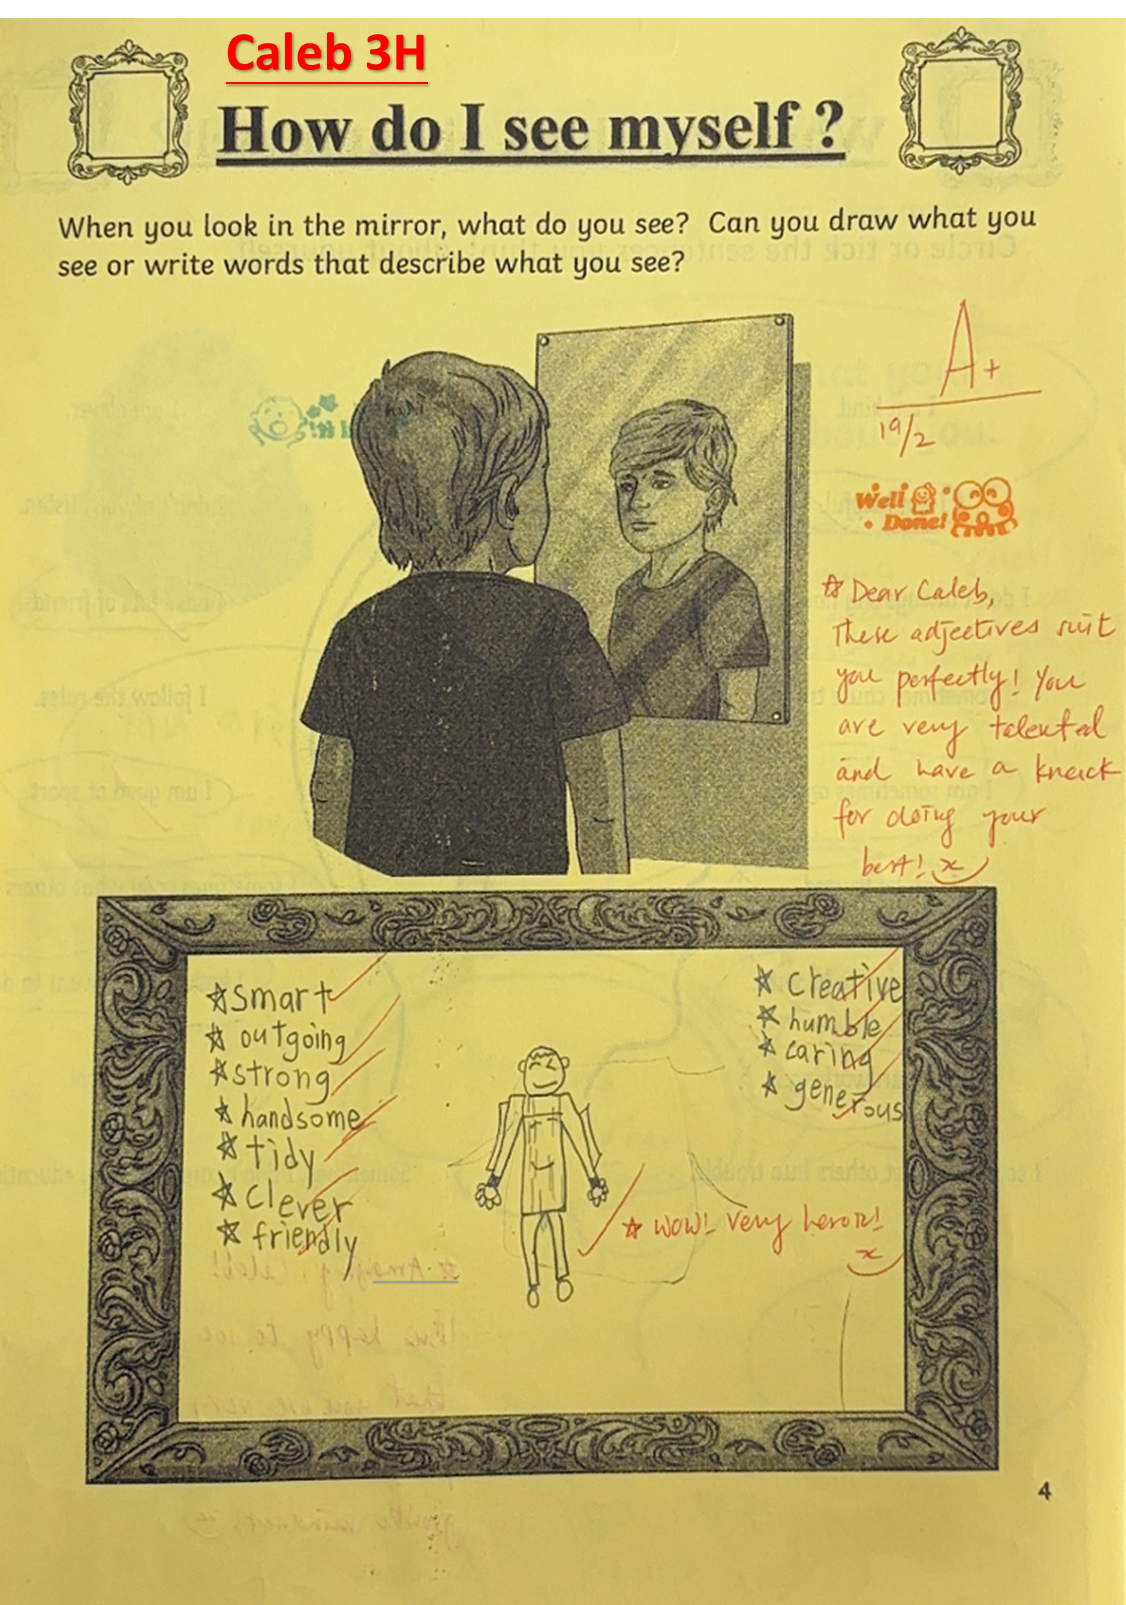 Caleb 3H
How do I see myself ?
When you look in the mirror, what do you see? Can you draw what you
see or write words that describe what you see?
A+
19/2
Well
Done!
☆ Dear Caleb,
These adjectives suit
you perfectly! You
are very talented
and have a knack
for doing your
best!
☆ smart
☆ outgoing
☆ strong
☆ handsome
☆ tidy
☆ clever
☆ friendly
☆ creative
☆ humble
☆ caring
☆ generous
☆ wow! Very heroic!
4